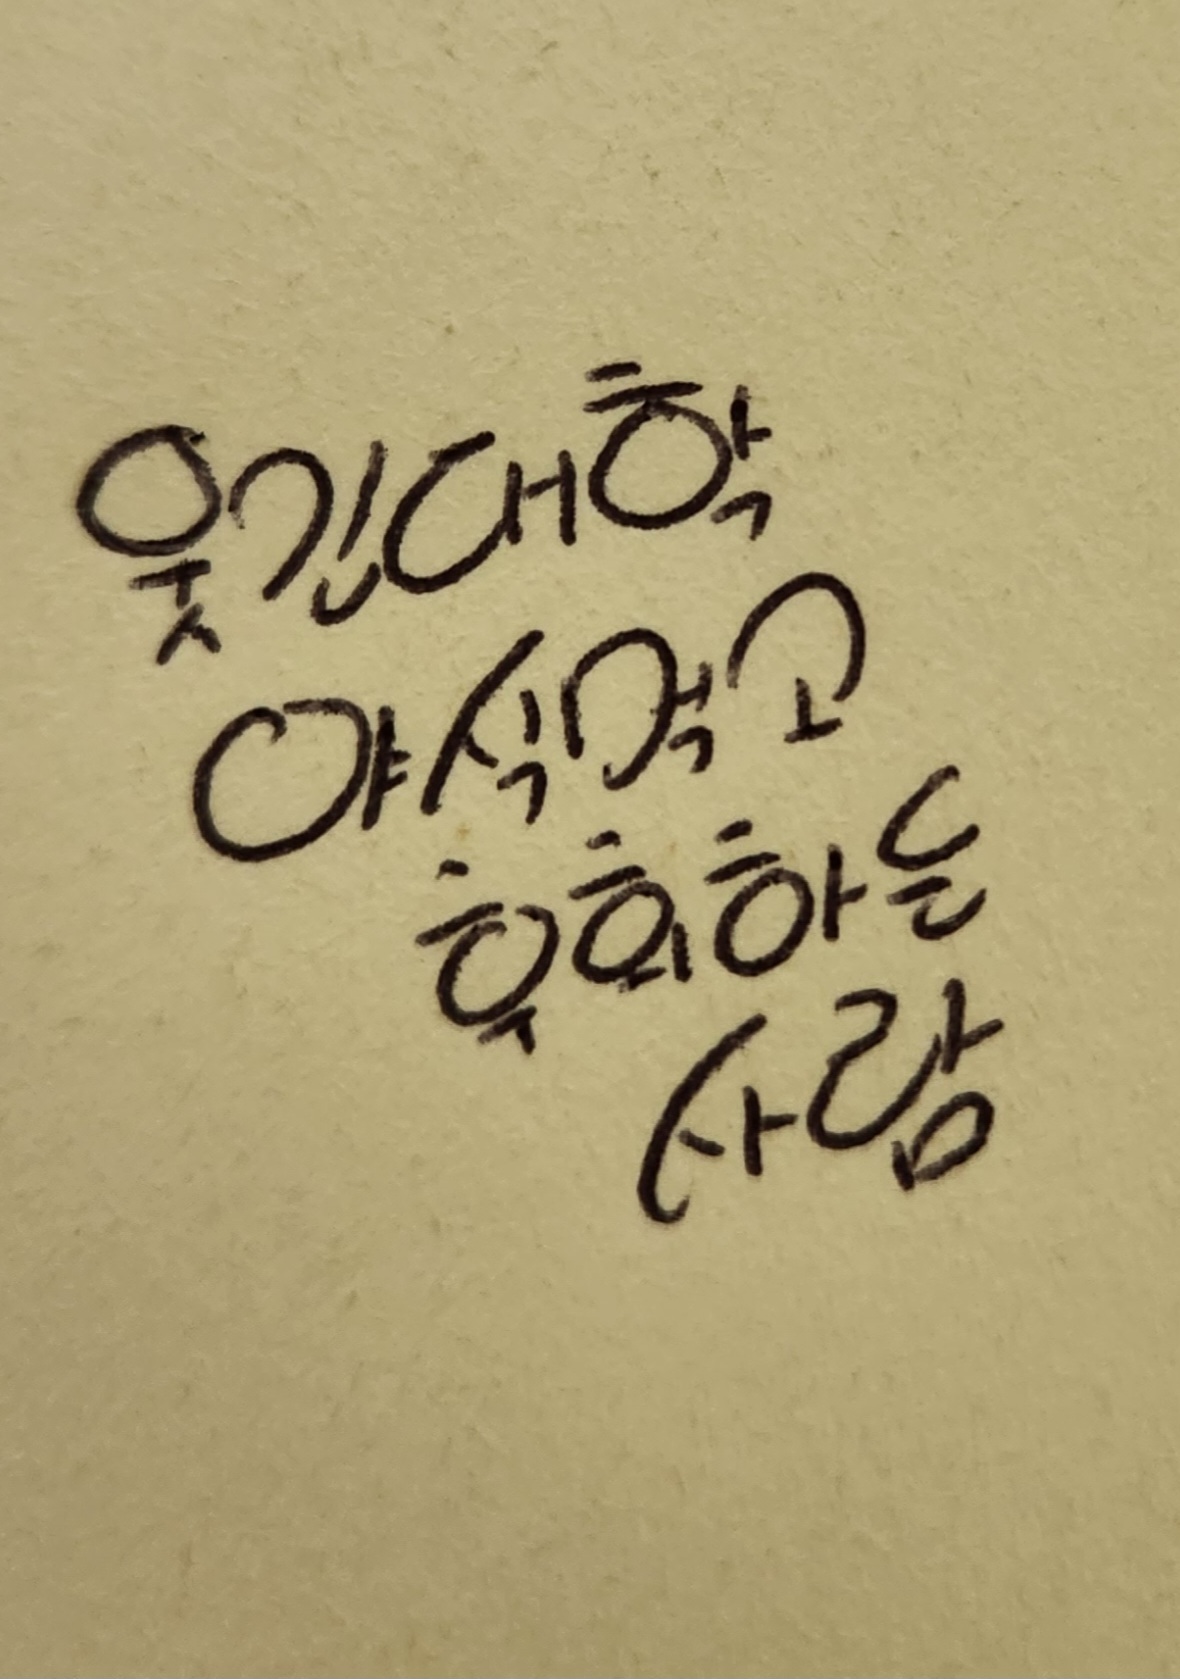 웃긴대학
야식먹고
후회하는
사람